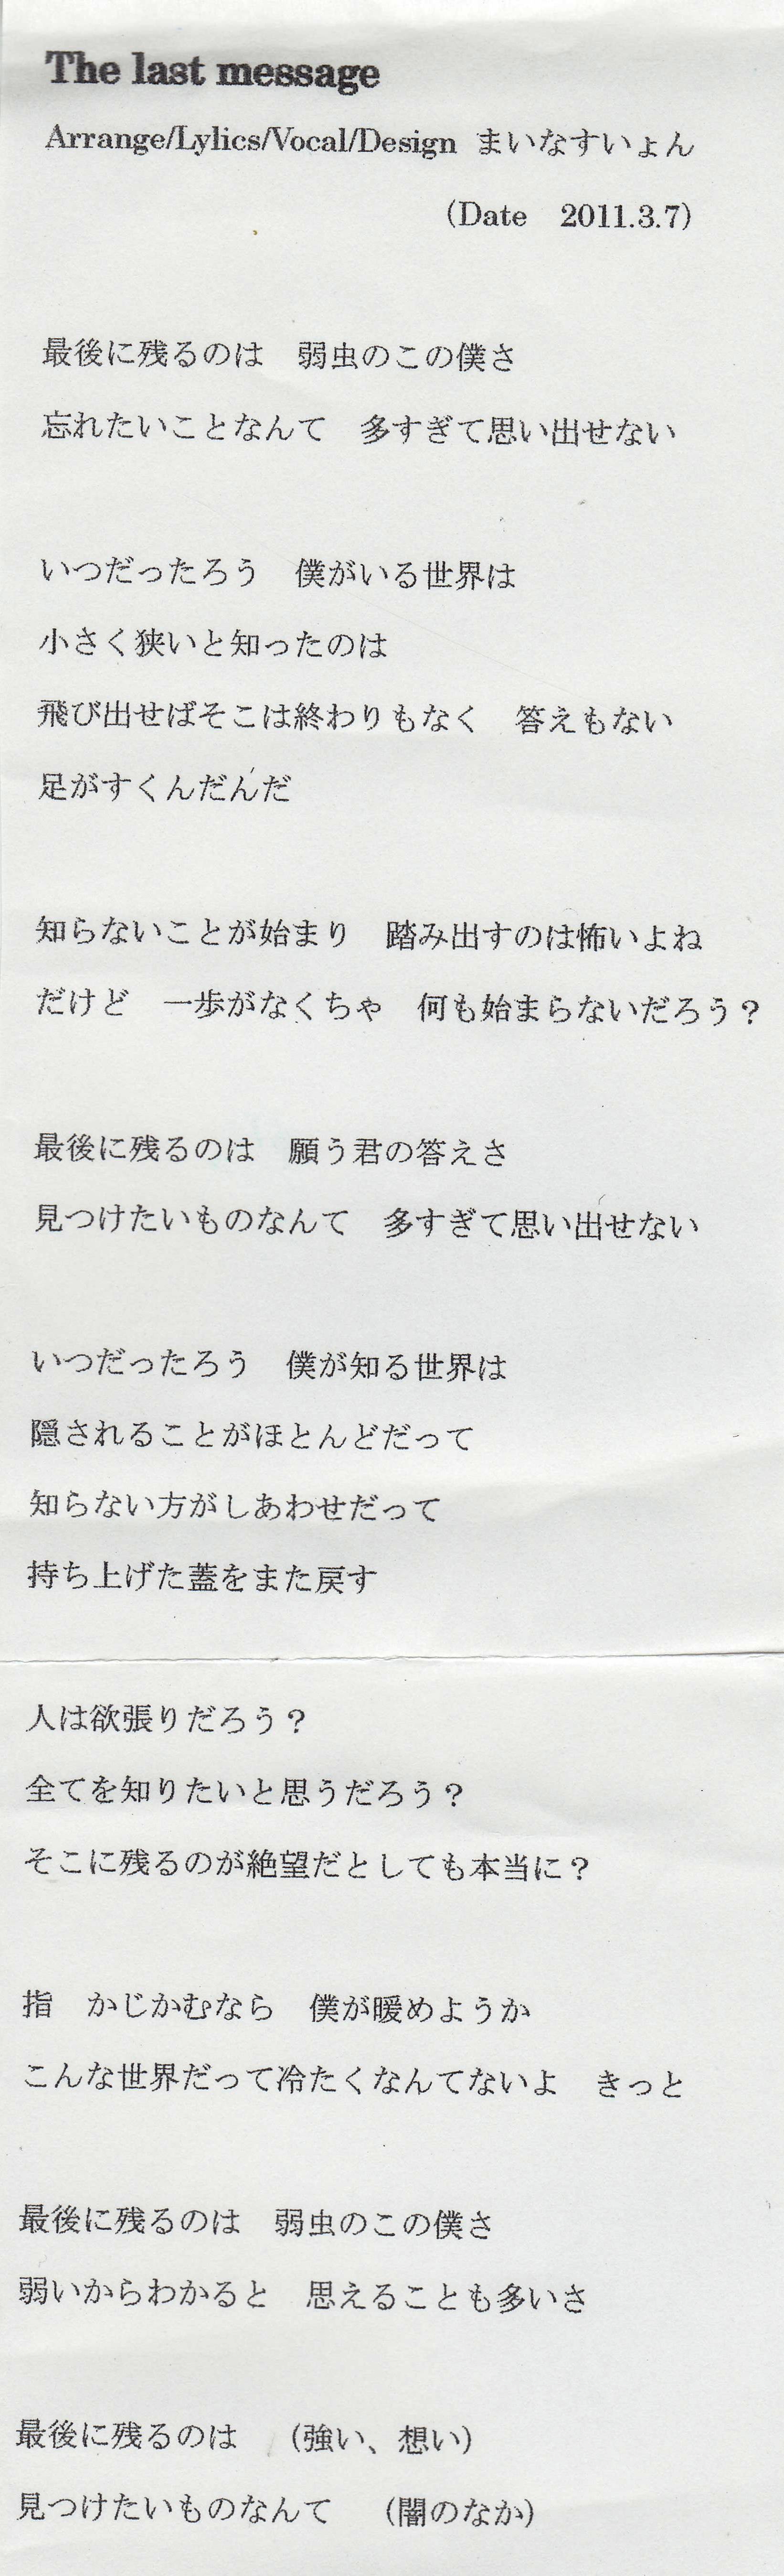 The last message
Arrange/Lylics/Vocal/Design まいなすいょん
(Date　2011.3.7)
最後に残るのは　弱虫のこの僕さ
忘れたいことなんて　多すぎて思い出せない
いつだったろう　僕がいる世界は
小さく狭いと知ったのは
飛び出せばそこは終わりもなく　答えもない
足がすくんだんだ
知らないことが始まり　踏み出すのは怖いよね
だけど　一歩がなくちゃ　何も始まらないだろう？
最後に残るのは　願う君の答えさ
見つけたいものなんて　多すぎて思い出せない
いつだったろう　僕が知る世界は
隠されることがほとんどだって
知らない方がしあわせだって
持ち上げた蓋をまた戻す
人は欲張りだろう？
全てを知りたいと思うだろう？
そこに残るのが絶望だとしても本当に？
指　かじかむなら　僕が暖めようか
こんな世界だって冷たくなんてないよ　きっと
最後に残るのは　弱虫のこの僕さ
弱いからわかると　思えることも多いさ
最後に残るのは　（強い、想い）
見つけたいものなんて　（闇のなか）